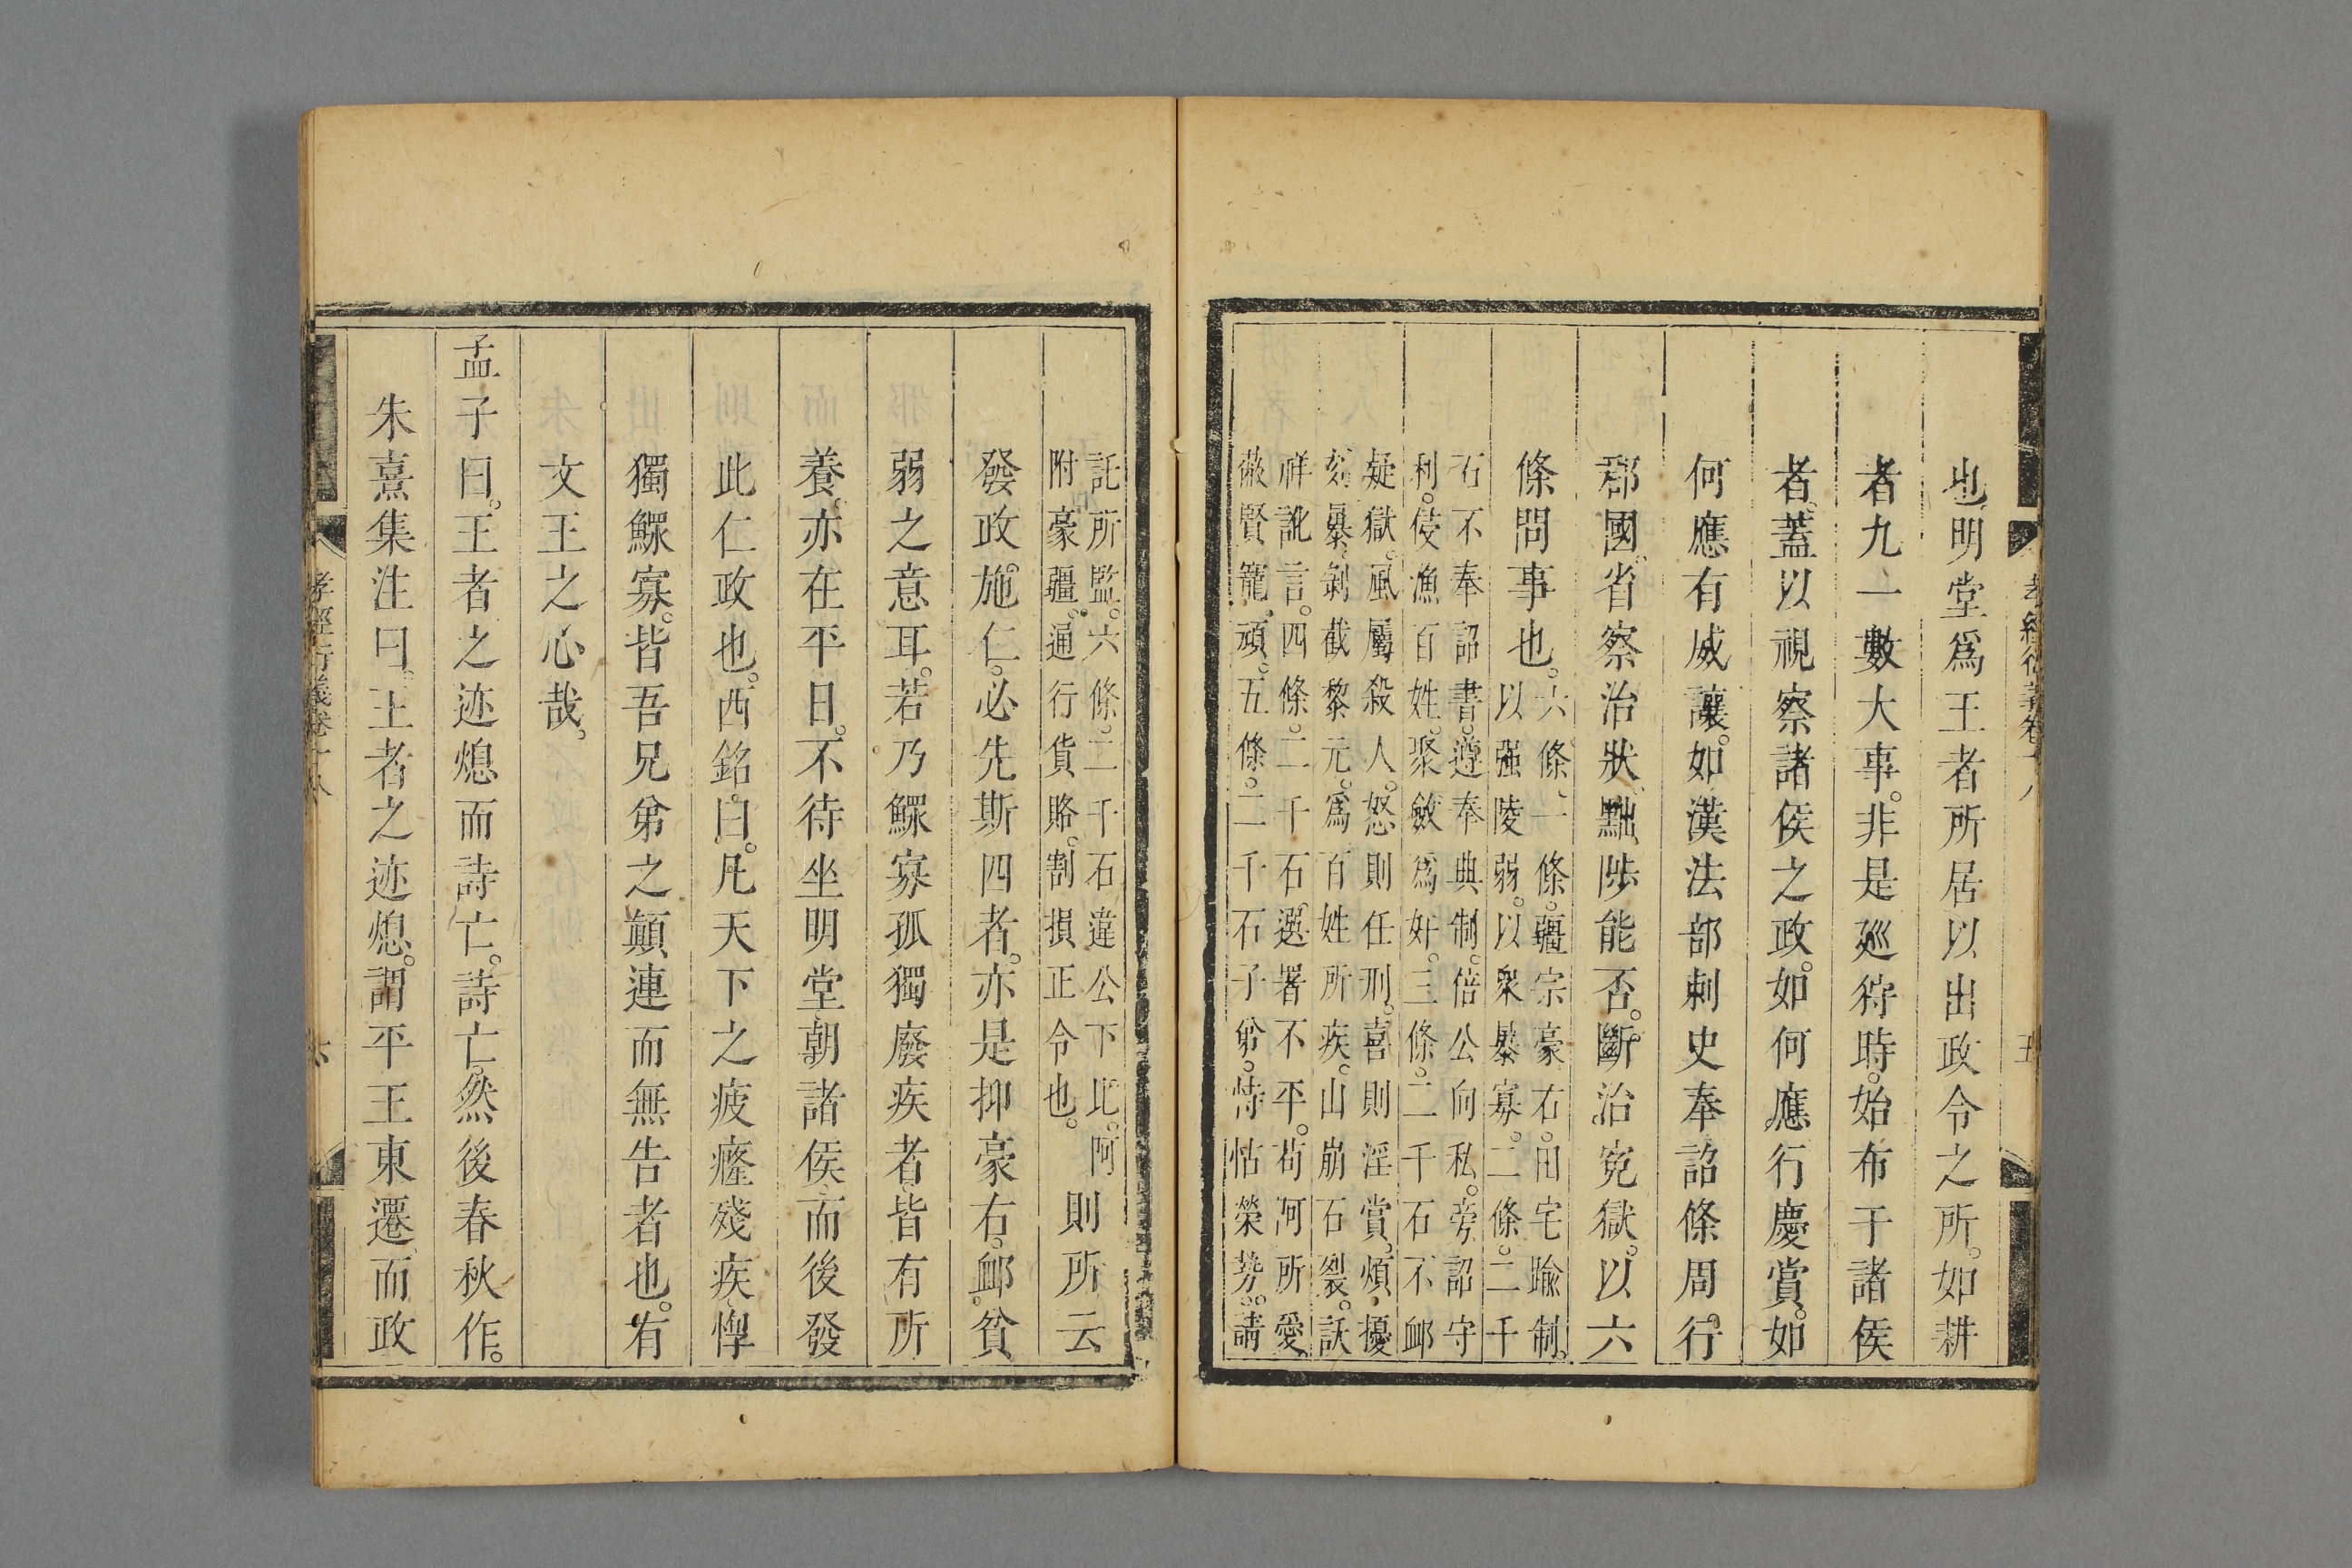 也明堂爲王者所居以出政令之所。如耕
者九一數大事。非是廵狩時。始布于諸侯
者。蓋以視察諸侯之政。如何應行慶賞。如
何應有威讓。如漢法部刺史奉詔條周。行
郡國。省察治狀。黜陟能否。斷治寃獄。以六
條問事也。六條、一條。疆宗豪右。田宅踰制。
以强陵弱。以衆暴寡。二條。二千
石不奉詔書。遵奉典制。倍公向私。旁詔守
利。侵漁百姓。聚斂爲奸。三條。二千石不卹
疑獄。風厲殺人。怒則任刑。喜則淫賞。煩擾
刻暴。剝截黎元。爲百姓所疾。山崩石裂。訞
祥訛言。四條。二千石選署不平。苟阿所愛
蔽賢寵頑。五條。二千石子弟。恃怙榮勢。請
孝經衍義卷十八 五
託所監。六條。二千石違公下比。阿
附豪疆。通行貨賂。割損正令也。則所云
發政。施仁。必先斯四者。亦是抑豪右。卹貧
弱之意耳。若乃鰥寡孤獨廢疾者。皆有所
養。亦在平日。不待坐明堂朝諸侯。而後發
此仁政也。西銘。曰。凡天下之疲癃殘疾惸
獨鰥寡。皆吾兄弟之顚連而無告者也。有
文王之心哉。
孟子曰。王者之迹熄而詩亡。詩亡。然後春秋作。
朱熹集注曰。王者之迹熄。謂平王東遷、而政
孝經衍義卷十八 六